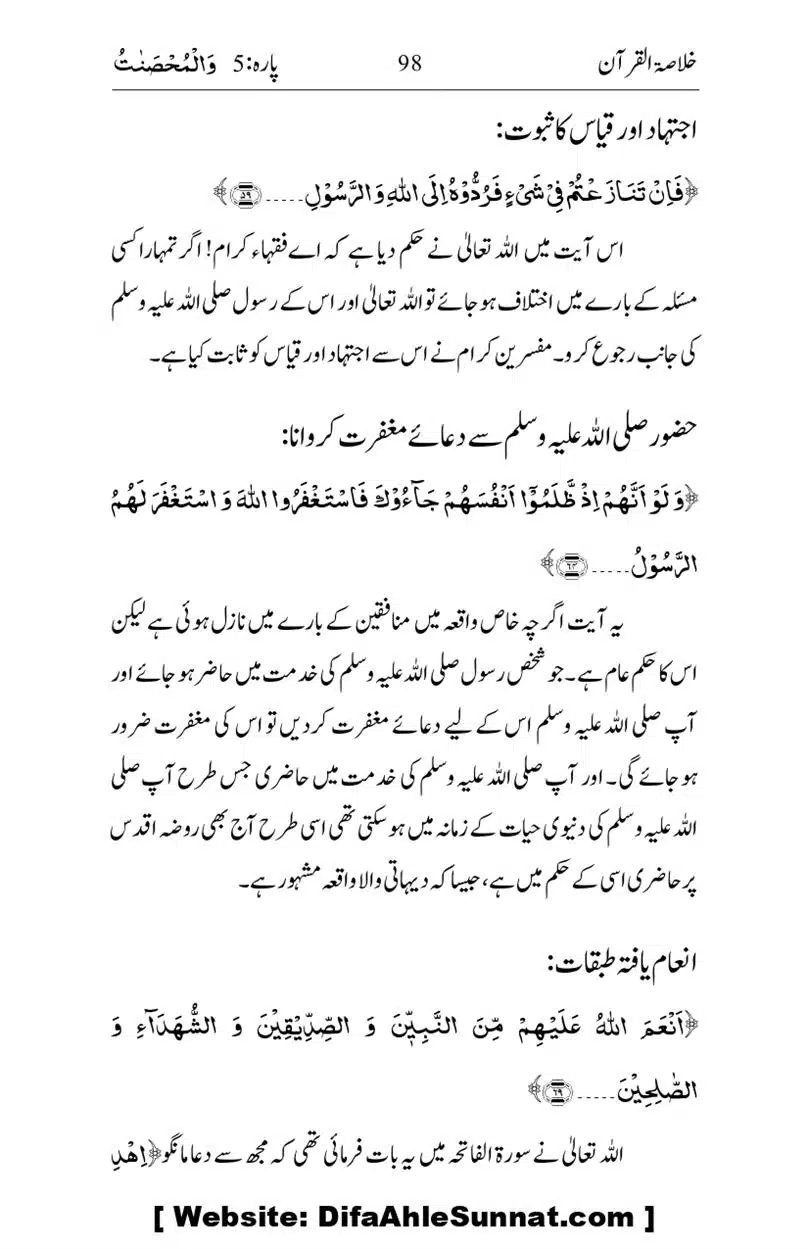 خلاصۃ القرآن 98 پارہ:5 وَالْمُحْصَنٰتُ
اجتہاد اور قیاس کا ثبوت:
﴿فَاِنْ تَنَازَعْتُمْ فِیْ شَیْءٍ فَرُدُّوْہُ اِلَی اللہِ وَ الرَّسُوْلِ.....﴿۵۹﴾﴾
اس آیت میں اللہ تعالیٰ نے حکم دیا ہے کہ اے فقہاء کرام! اگر تمہارا کسی
مسئلہ کے بارے میں اختلاف ہو جائے تو اللہ تعالیٰ اور اس کے رسول صلی اللہ علیہ وسلم
کی جانب رجوع کرو۔ مفسرین کرام نے اس سے اجتہاد اور قیاس کو ثابت کیا ہے۔
حضور صلی اللہ علیہ وسلم سے دعائے مغفرت کروانا:
﴿وَ لَوْ اَنَّهُمْ اِذْ ظَّلَمُوْۤا اَنْفُسَهُمْ جَآءُوْكَ فَاسْتَغْفَرُوا اللہَ وَ اسْتَغْفَرَ لَهُمُ
الرَّسُوْلُ.....﴿۶۴﴾﴾
یہ آیت اگرچہ خاص واقعہ میں منافقین کے بارے میں نازل ہوئی ہے لیکن
اس کا حکم عام ہے۔ جو شخص رسول صلی اللہ علیہ وسلم کی خدمت میں حاضر ہو جائے اور
آپ صلی اللہ علیہ وسلم اس کے لیے دعائے مغفرت کر دیں تو اس کی مغفرت ضرور
ہو جائے گی۔ اور آپ صلی اللہ علیہ وسلم کی خدمت میں حاضری جس طرح آپ صلی
اللہ علیہ وسلم کی دنیوی حیات کے زمانہ میں ہو سکتی تھی اسی طرح آج بھی روضہ اقدس
پر حاضری اسی کے حکم میں ہے، جیسا کہ دیہاتی والا واقعہ مشہور ہے۔
انعام یافتہ طبقات:
﴿اَنْعَمَ اللہُ عَلَیْهِمْ مِّنَ النَّبِیّٖنَ وَ الصِّدِّیْقِیْنَ وَ الشُّهَدَآءِ وَ
الصّٰلِحِیْنَ.....﴿۶۹﴾﴾
اللہ تعالیٰ نے سورۃ الفاتحہ میں یہ بات فرمائی تھی کہ مجھ سے دعا مانگو ﴿اِهْدِ
[ Website: DifaAhleSunnat.com ]